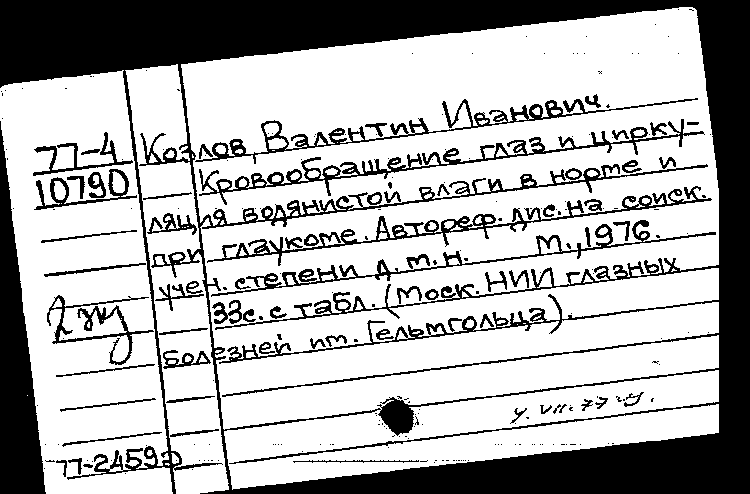 77-4
10790
Козлов, Валентин Иванович.
Кровообращение глаз и цирку=
ляция водянистой влаги в норме и
при глаукоме. Автореф. дис. на соиск.
учен. степени д.м.н. М., 1976.
33с. с табл. (Моск. НИИ глазных
болезней им. Гельмгольца).
2 экз
77-2459